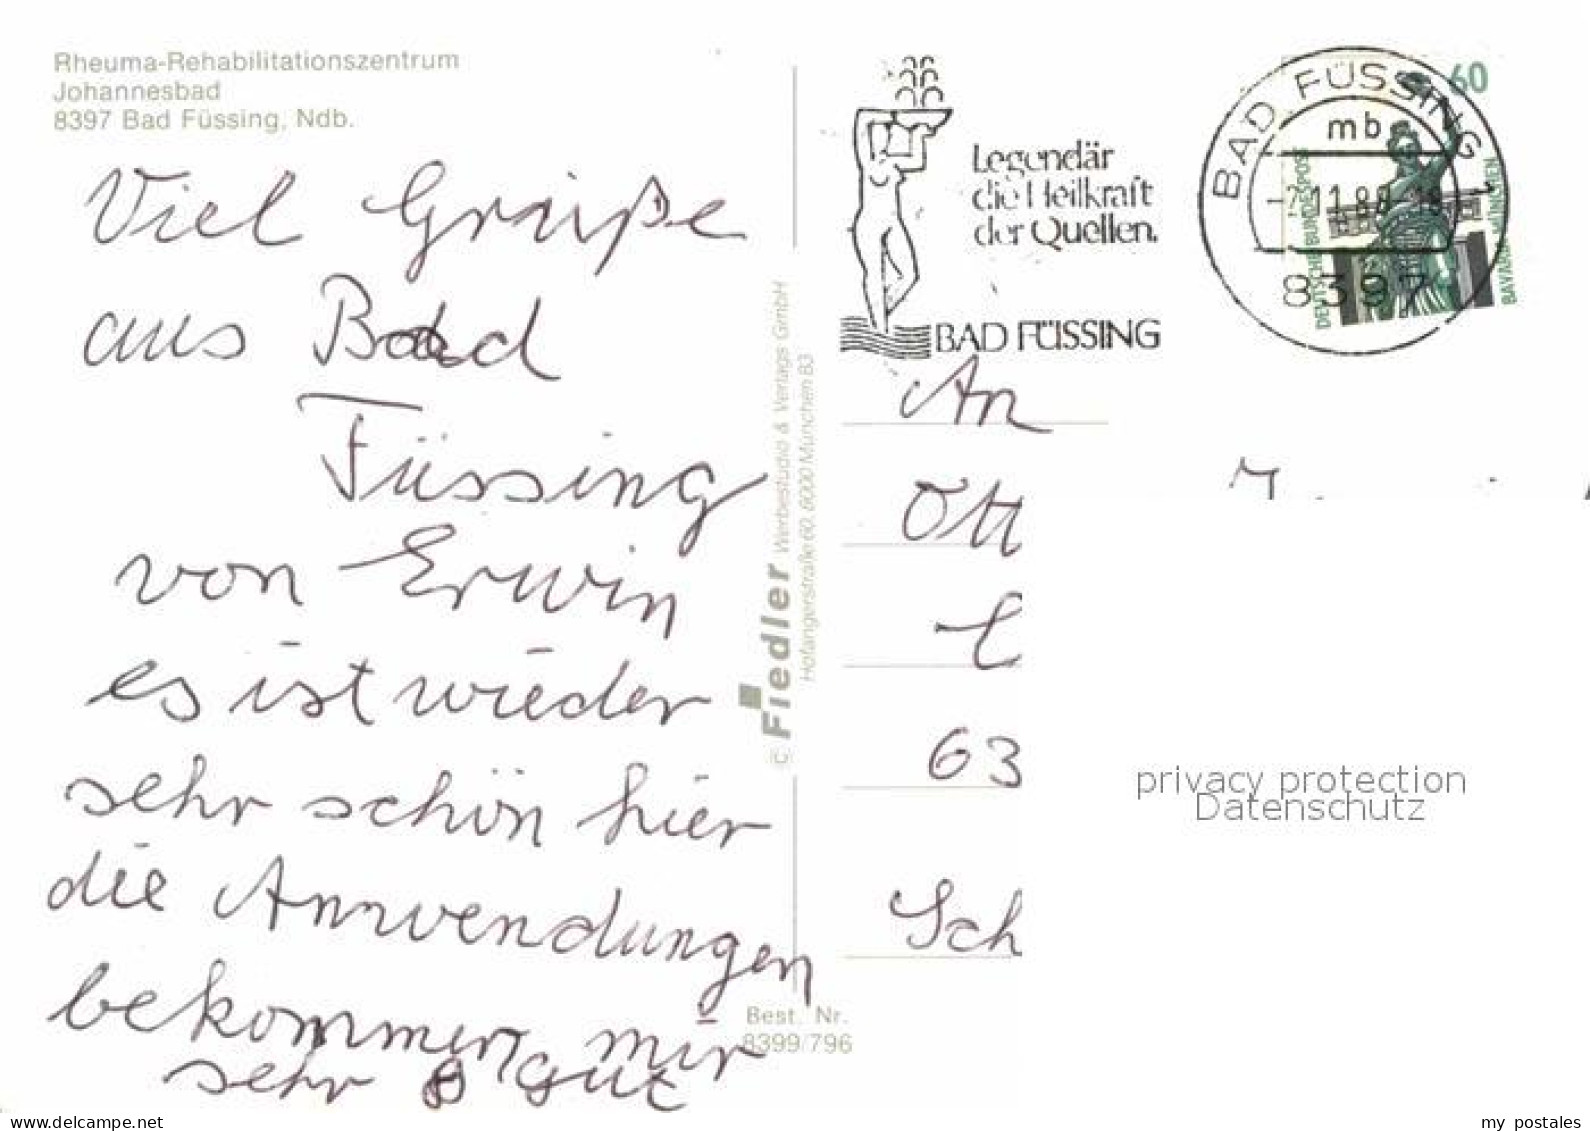 Rheuma-Rehabilitationszentrum
Johannesbad
8397 Bad Füssing, Ndb.
Viel Grüße
aus Bad
Füssing
von Erwin
es ist wieder
sehr schön hier
die Anwendungen
bekommen mir
sehr gut
© Fiedler Werbestudio & Verlags GmbH
Hofangerstraße 60, 8000 München 83
Best. Nr.
8399/796
Legendär
die Heilkraft
der Quellen.
BAD FÜSSING
BAD FÜSSING
mb
11.88
8397
60
DEUTSCHE BUNDESPOST
BAVARIA MÜNCHEN
An
Ott
63
Sch
privacy protection
Datenschutz
www.delcampe.net
my postales